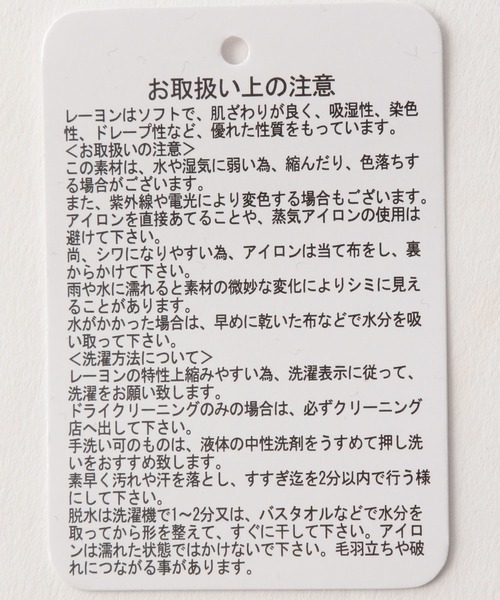 お取扱い上の注意
レーヨンはソフトで、肌ざわりが良く、吸湿性、染色
性、ドレープ性など、優れた性質をもっています。
＜お取扱いの注意＞
この素材は、水や湿気に弱い為、縮んだり、色落ちす
る場合がございます。
また、紫外線や電光により変色する場合もございます。
アイロンを直接あてることや、蒸気アイロンの使用は
避けて下さい。
尚、シワになりやすい為、アイロンは当て布をし、裏
からかけて下さい。
雨や水に濡れると素材の微妙な変化によりシミに見え
ることがあります。
水がかかった場合は、早めに乾いた布などで水分を吸
い取って下さい。
＜洗濯方法について＞
レーヨンの特性上縮みやすい為、洗濯表示に従って、
洗濯をお願い致します。
ドライクリーニングのみの場合は、必ずクリーニング
店へ出して下さい。
手洗い可のものは、液体の中性洗剤をうすめて押し洗
いをおすすめ致します。
素早く汚れや汗を落とし、すすぎ迄を2分以内で行う様
にして下さい。
脱水は洗濯機で1～2分又は、バスタオルなどで水分を
取ってから形を整えて、すぐに干して下さい。アイロ
ンは濡れた状態ではかけないで下さい。毛羽立ちや破
れにつながる事があります。